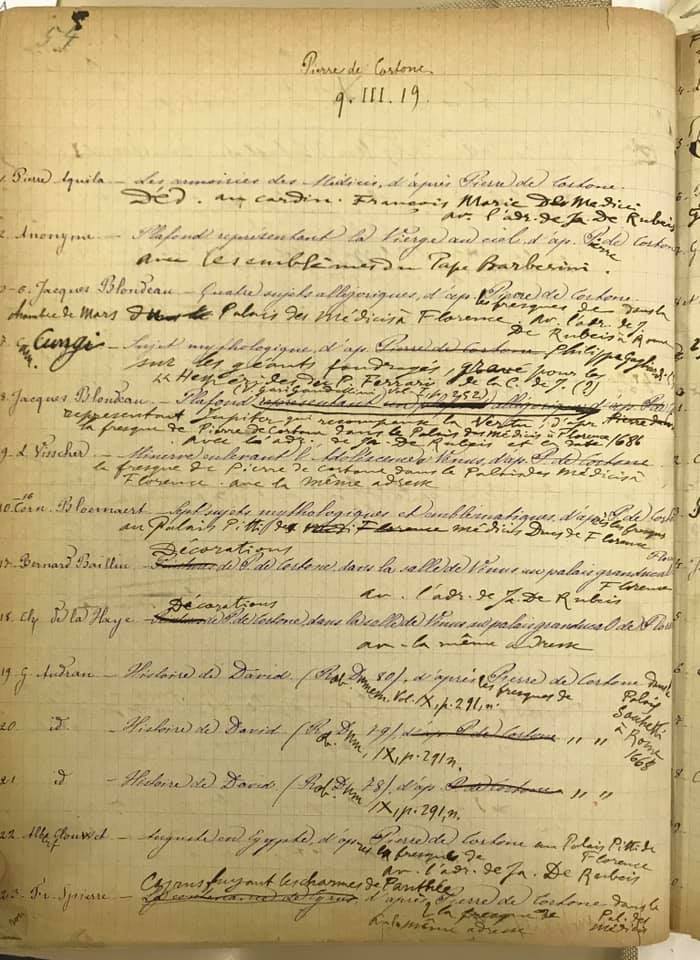 54
Pierre de Cortone
9. III. 19.
1. Pierre Aquila — Les armoiries des Médicis, d'après Pierre de Cortone.
Déd. au cardin. François Marie Des Medici
av. l'adr. de Ja. De Rubeis
2. Anonyme — Plafond représentant la Vierge au ciel d'ap. Pierre de Cortone
avec les emblèmes du Pape Barberini.
3-6. Jacques Blondeau — Quatre sujets allégoriques, d'ap. les fresques de Pierre de Cortone dans la
chambre de Mars Palais des Médicis à Florence av. l'adr. de J.
De Rubeis à Rome
7. Cungi — Sujet mythologique, d'ap. Pierre de Cortone Philippe
sur les géants foudroyés, gravé pour les
Hespérides des P. Ferraris de la C. de J. (?)
8. Jacques Blondeau — Plafond représentant allégorique d'ap.
représentant Jupiter qui récompense la Vertu, d'apr.
la fresque de Pierre de Cortone dans le Palais des Médicis à Florence 1686
avec l'adr. de Ja. De Rubeis
9. L. Visscher — Minerve enlevant l'Adolescence à Vénus, d'ap. P. de Cortone
la fresque de Pierre de Cortone dans le Palais des Médicis à
Florence avec la même adresse
10-16 Corn. Bloemaert — Sept sujets mythologiques et emblématiques, d'après les fresques P. de Cort
au Palais Pitti des Florence médicis Ducs de Florence
Décorations
17. Bernard Baillieu — de P. de Cortone dans la salle de Vénus au palais granducal
Florence
av. l'adr. de Ja. De Rubeis
Décorations
18. Ch. de la Haye — de P. de Cortone dans la salle de Vénus au palais granducal de Flor
av. la même adresse
19. G. Audran — Histoire de David. (Rob. Dum. 80), d'après les fresques de Pierre de Cortone dans le
Dumesn. Vol. IX, p. 291, n. Palais
Sacchetti
à Rome
1668
20. id — Histoire de David (Rob. Dum 79). d'ap. P. de Cortone " "
IX, p. 291 n.
21. id — Histoire de David. (Rob. Dum 78) d'ap. P. de Cortone " "
IX, p. 291, n.
22. Alb. Clouwet — Auguste en Egypte, d'après la fresque de Pierre de Cortone au Palais Pitti de
Florence
av. l'adr. de Ja. De Rubeis
Cyrus fuyant les charmes de Panthée
23. Fr. Spierre — La continence de Cyrus d'après Pierre de Cortone dans le
la fresque de Pal. des
av. la même adresse médicis